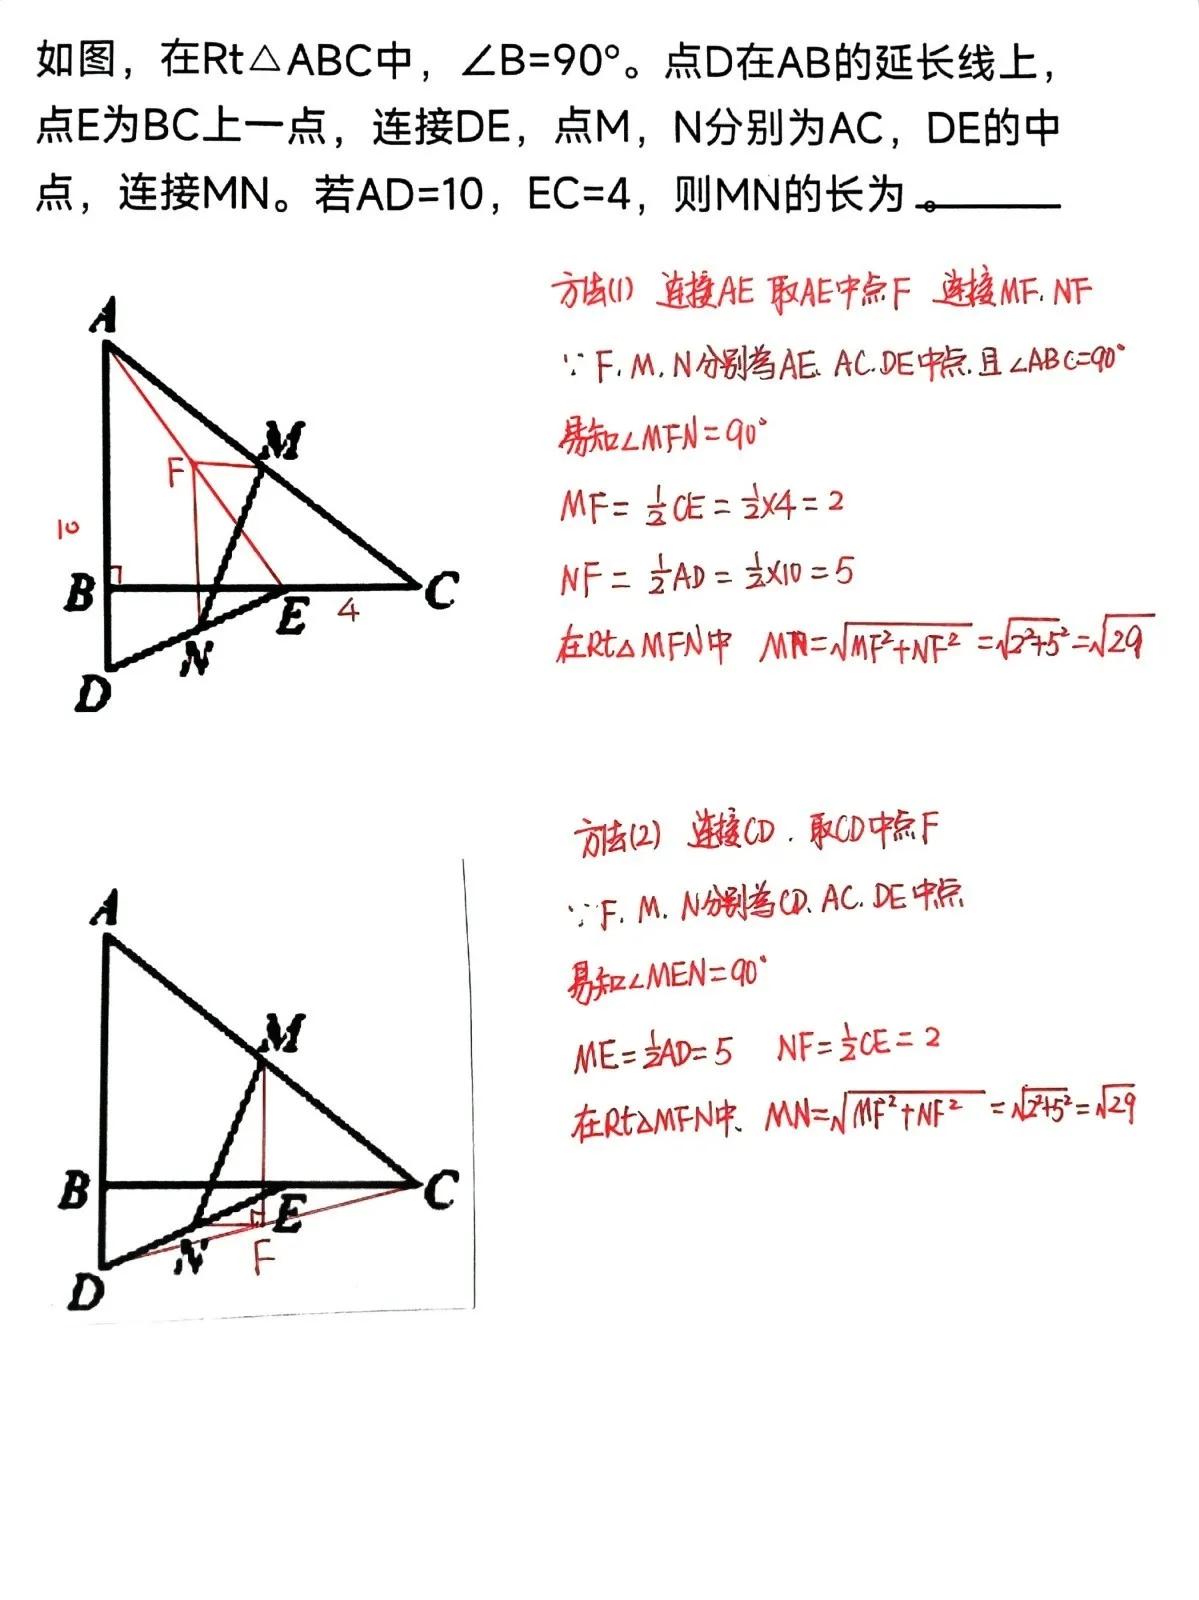 如图，在Rt△ABC中，∠B=90°。点D在AB的延长线上，
点E为BC上一点，连接DE，点M，N分别为AC，DE的中
点，连接MN。若AD=10，EC=4，则MN的长为 。
方法(1) 连接AE 取AE中点F 连接MF、NF
∵F、M、N分别為AE、AC、DE中点.且∠ABC=90°
易知∠MFN=90°
MF=½CE=½×4=2
NF=½AD=½×10=5
在Rt△MFN中 MN=√MF²+NF²=√2²+5²=√29
A
M
F
10
B
E
4
C
N
D
方法(2) 连接CD . 取CD中点F
∵F、M、N分别為CD、AC、DE中点
易知∠MEN=90°
ME=½AD=5 NF=½CE=2
在Rt△MFN中、 MN=√MF²+NF²=√2²+5²=√29
A
M
B
E
C
N
F
D